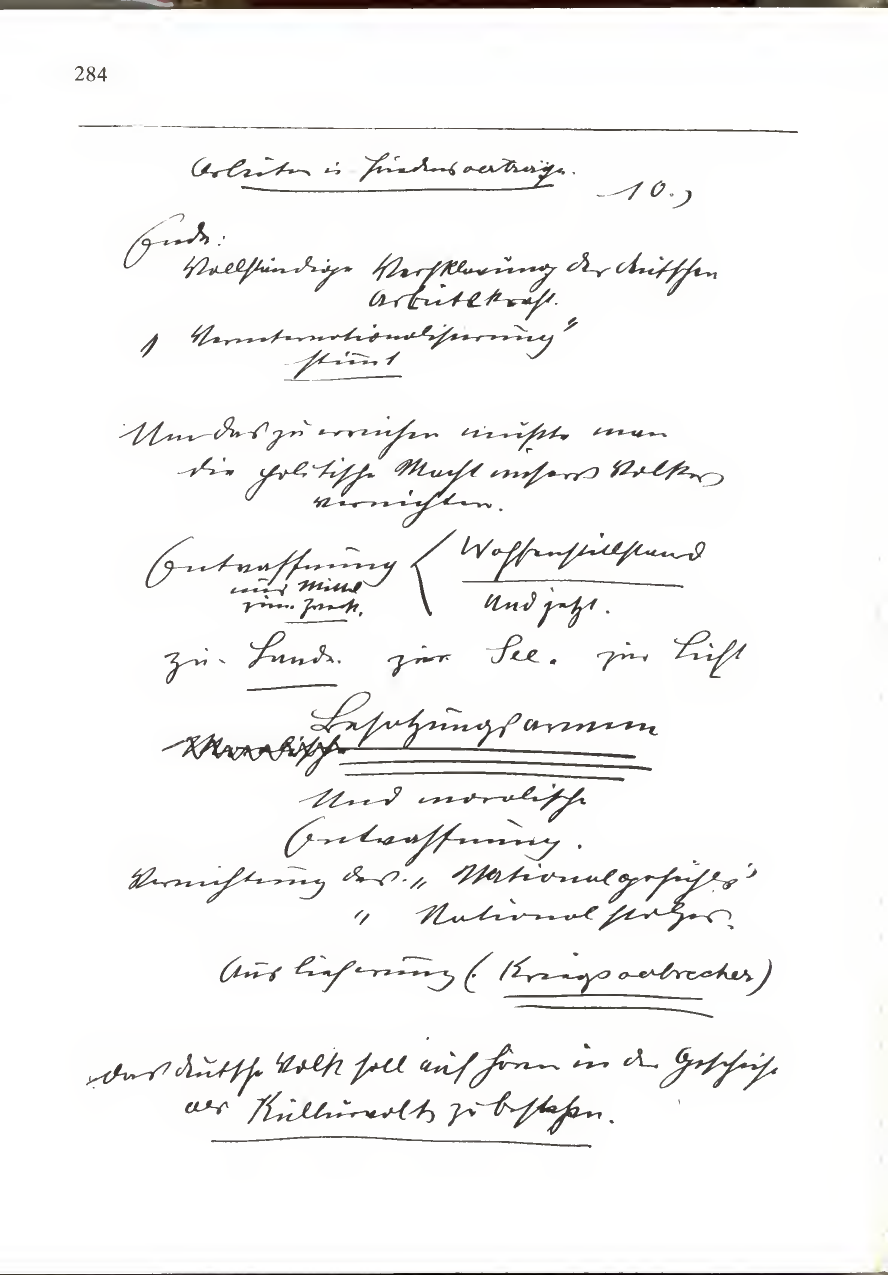 284
Arbeiter u Friedensverträge.
10.)
Ende:
Vollständige Versklavung der deutschen
Arbeitskraft.
" Verinternationalisierung"
stimmt
Um das zu erreichen mußte man
die politische Macht unseres Volkes
vernichten.
Entwaffnung Waffenstillstand
nur Mittel
zum Zweck. Und jetzt.
zu Lande. zur See. zur Luft
Besatzungsarmeen
Moralische
Und moralische
Entwaffnung.
Vernichtung des „Nationalgefühles"
" Nationalstolzes.
Auslieferung (Kriegsverbrecher)
das deutsche Volk soll aufhören in der Geschichte
als Kulturvolk zu bestehen.